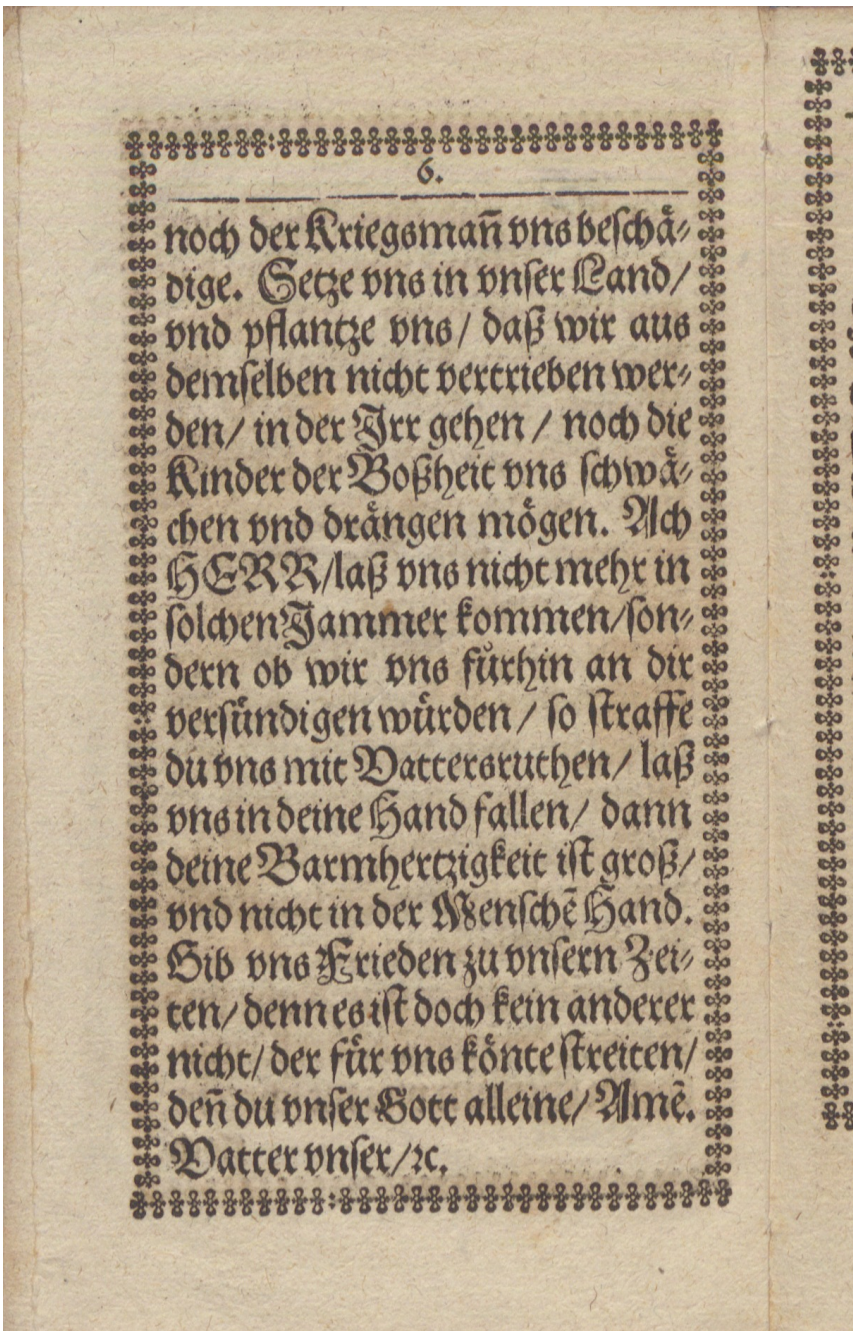 6.
noch der Kriegsmañ vns beschä⸗
dige. Setze vns in vnser Land/
vnd pflantze vns/ daß wir aus
demselben nicht vertrieben wer⸗
den/ in der Jrr gehen / noch die
Kinder der Boßheit vns schwä⸗
chen vnd drängen mögen. Ach
HERR/laß vns nicht mehr in
solchen Jammer kommen/son⸗
dern ob wir vns fürhin an dir
versündigen würden / so straffe
du vns mit Vattersruthen/ laß
vns in deine Hand fallen/ dann
deine Barmhertzigkeit ist groß/
vnd nicht in der Menschẽ Hand.
Gib vns Frieden zu vnsern Zei⸗
ten/ denn es ist doch kein anderer
nicht/ der für vns könte streiten/
deñ du vnser Gott alleine/ Amẽ.
Vatter vnser/ꝛc.